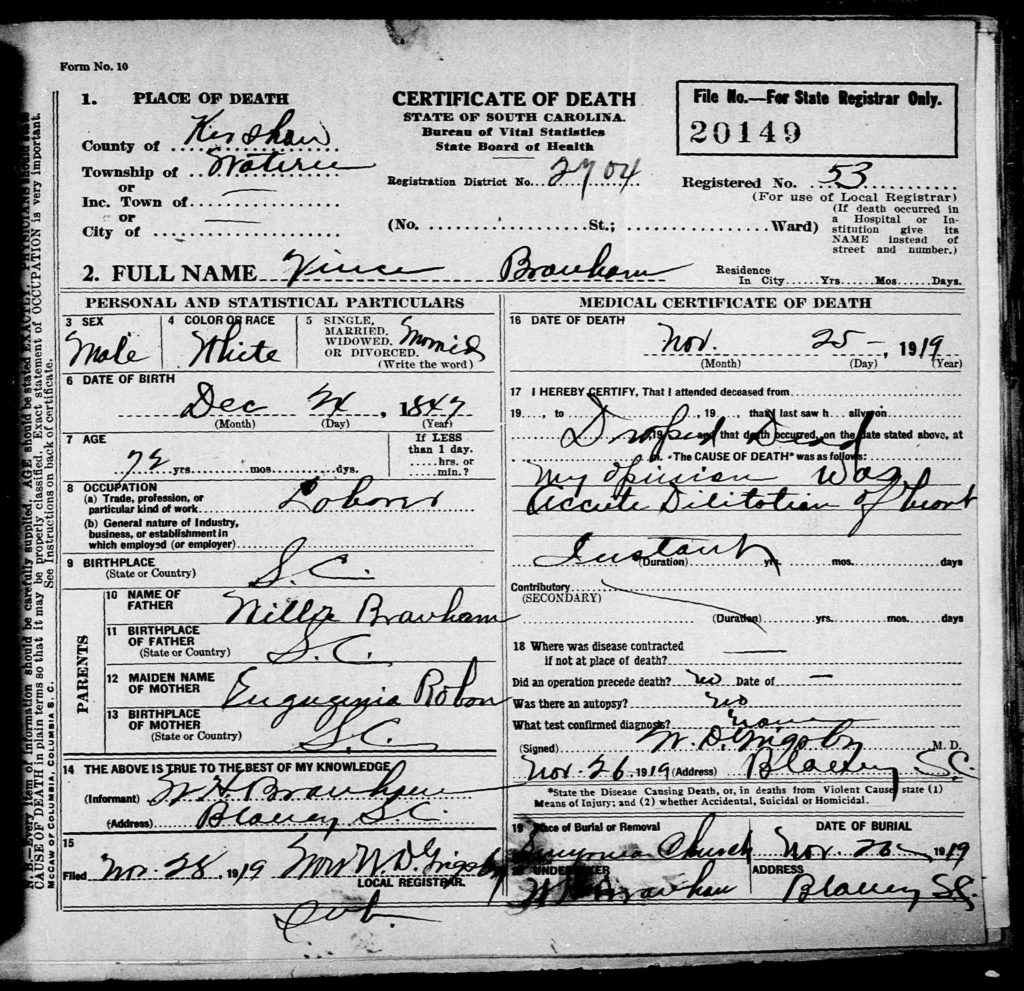 Form No. 10
1. PLACE OF DEATH
County of Kershaw
Township of Wateree
or
Inc. Town of
or
City of
CERTIFICATE OF DEATH
STATE OF SOUTH CAROLINA.
Bureau of Vital Statistics
State Board of Health
Registration District No. 2704
(No. St.; Ward)
File No.—For State Registrar Only.
20149
Registered No. 53
(For use of Local Registrar)
(If death occurred in
a Hospital or In-
stitution give its
NAME instead of
street and number.)
2. FULL NAME Vince Branham
Residence
In City Yrs. Mos. Days.
PERSONAL AND STATISTICAL PARTICULARS
3 SEX
Male
4 COLOR OR RACE
White
5 SINGLE,
MARRIED,
WIDOWED,
OR DIVORCED.
(Write the word)
6 DATE OF BIRTH
Dec 24, 1847
(Month) (Day) (Year)
7 AGE
72 yrs. mos. dys.
If LESS
than 1 day.
hrs. or
min.?
8 OCCUPATION
(a) Trade, profession, or
particular kind of work
(b) General nature of Industry,
business, or establishment in
which employed (or employer)
9 BIRTHPLACE
(State or Country) S.C.
PARENTS
10 NAME OF
FATHER Branham
11 BIRTHPLACE
OF FATHER
(State or Country) S.C.
12 MAIDEN NAME
OF MOTHER
13 BIRTHPLACE
OF MOTHER
(State or Country) S.C.
14 THE ABOVE IS TRUE TO THE BEST OF MY KNOWLEDGE
(Informant) W H Branham
(Address) Blaney S.C
15
Filed Nov. 28 1919 W. D. Grigsby
LOCAL REGISTRAR.
Sub.
MEDICAL CERTIFICATE OF DEATH
16 DATE OF DEATH
Nov. 25 —, 1919
(Month) (Day) (Year)
17 I HEREBY CERTIFY, That I attended deceased from
19, to, 19 that I last saw h alive on
Droped Dead
, 19 and that death occurred, on the date stated above, at
m. The CAUSE OF DEATH* was as follows:
My Opinion Was
Accute Dilitation of heart
Instant
(Duration) yrs. mos. days
Contributory
(SECONDARY)
(Duration) yrs. mos. days
18 Where was disease contracted
if not at place of death? —
Did an operation precede death? no Date of —
Was there an autopsy? no
What test confirmed diagnosis? none
(Signed) W. D. Grigsby M. D.
Nov. 26 1919 (Address) Blaney S.C
*State the Disease Causing Death, or, in deaths from Violent Cause, state (1)
Means of Injury; and (2) whether Accidental, Suicidal or Homicidal.
19 Place of Burial or Removal
Church
DATE OF BURIAL
Nov. 26 — 1919
20 UNDERTAKER
W H Branham
ADDRESS
Blaney S.C.
N. B.—Every item of information should be carefully supplied. AGE should be stated EXACTLY. PHYSICIANS should state
CAUSE OF DEATH in plain terms so that it may be properly classified. Exact statement of OCCUPATION is very important.
See Instructions on back of certificate.
McCAW OF COLUMBIA, COLUMBIA S. C.